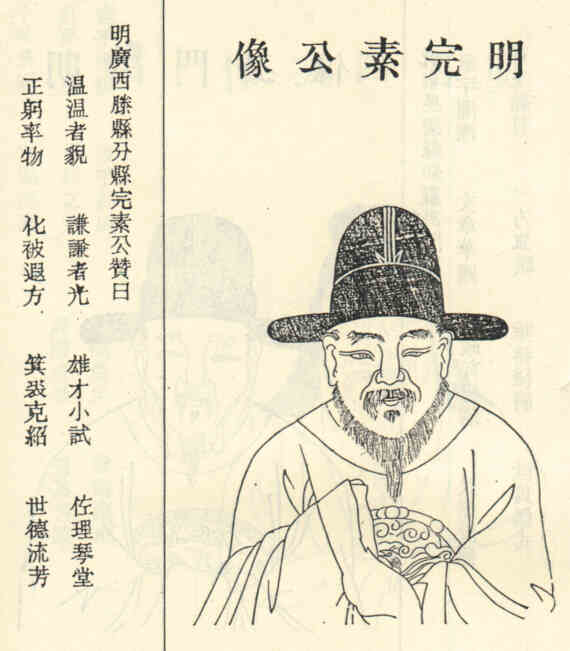 明完素公像
明廣西滕縣分縣完素公赞曰
溫溫者貌 謙謙者光 雄才小試 佐理琴堂
正躬率物 化被遐方 箕裘克紹 世德流芳